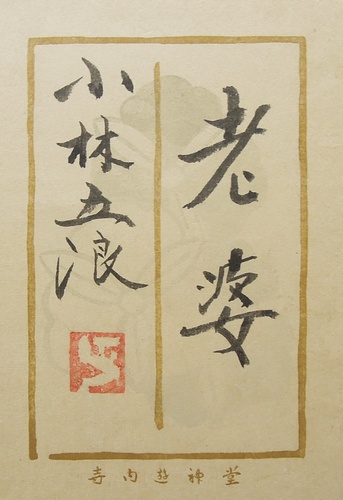 老婆
小林五浪
寺内遊神堂